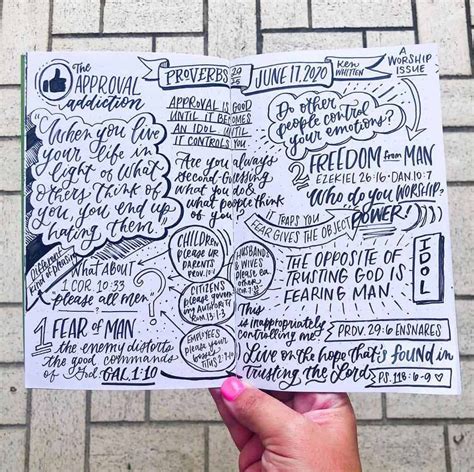 The
APPROVAL
addiction
PROVERBS
29
25
JUNE 17, 2020
Ken
Whitten
A
WORSHIP
ISSUE
"When you live
your life in
light of what
others think of
you, you end up
hating them."
APPROVAL IS GOOD
UNTIL IT BECOMES
AN IDOL. UNTIL
IT CONTROLS YOU.
Are you always
second-guessing
what you do &
what people think
of you?
DIFFERENT
KIND OF
What about
1 COR. 10:33
"please all men"
?
CHILDREN
please ur
PARENTS
PROV. 10:1
CITIZENS
please govern
ing AUTHORITY
ROM. 13:1-3
EMPLOYEES
please your
bosses
TITUS 2:9-10
HUSBANDS
& WIVES
please ea.
other
1 FEAR OF MAN
the enemy distorts
the good commands
of God GAL. 1:10
Do other
people control
your emotions?
2 FREEDOM from MAN
EZEKIEL 26:16 · DAN. 10:7
Who do you WORSHIP?
IT TRAPS YOU
FEAR GIVES THE OBJECT POWER!
THE OPPOSITE OF
TRUSTING GOD IS
FEARING MAN.
IDOL
This
is inappropriately
controlling me!
PROV. 29:6 ENSNARES
Live on the hope that's found in
trusting the Lord
PS. 118:6-9